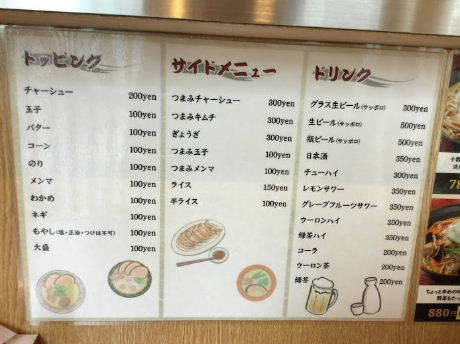 トッピング
チャーシュー 200yen
玉子 100yen
バター 100yen
コーン 100yen
のり 100yen
メンマ 100yen
わかめ 100yen
ネギ 100yen
もやし(塩・正油・つけは不可) 100yen
大盛 100yen
サイドメニュー
つまみチャーシュー 300yen
つまみキムチ 300yen
ぎょうざ 300yen
つまみ玉子 100yen
つまみメンマ 100yen
ライス 150yen
半ライス 100yen
ドリンク
グラス生ビール(サッポロ) 300yen
生ビール(サッポロ) 500yen
瓶ビール(サッポロ) 500yen
日本酒 350yen
チューハイ 300yen
レモンサワー 350yen
グレープフルーツサワー 350yen
ウーロンハイ 350yen
緑茶ハイ 350yen
コーラ 200yen
ウーロン茶 200yen
緑茶 200yen
ちょっと辛めの
野菜もたっ
880円